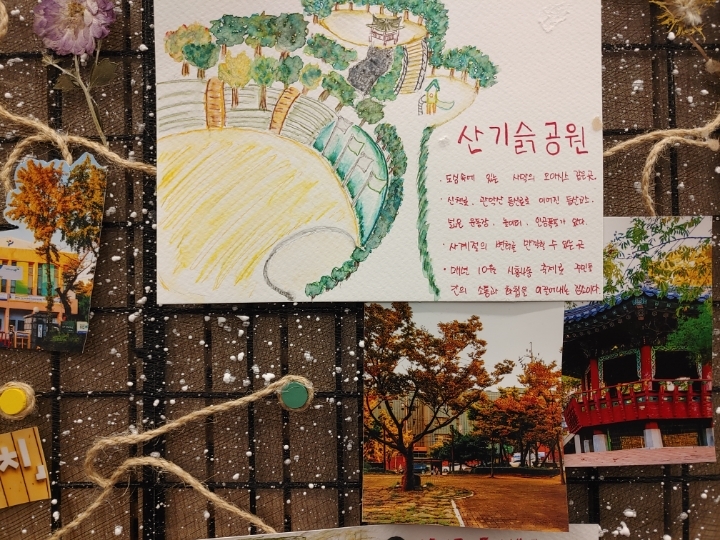 산기슭공원
· 도심속에 있는 사막의 오아시스 같은곳.
· 산책로, 관악산 등산로로 이어진 등산코스.
넓은 운동장, 놀이터, 인공폭포가 있다.
· 사계절의 변화를 만끽할 수 있는곳
· 매년 10월 시흥시흥 축제로 주민들
간의 소통과 화합을 이끌어내는 장소이다
친